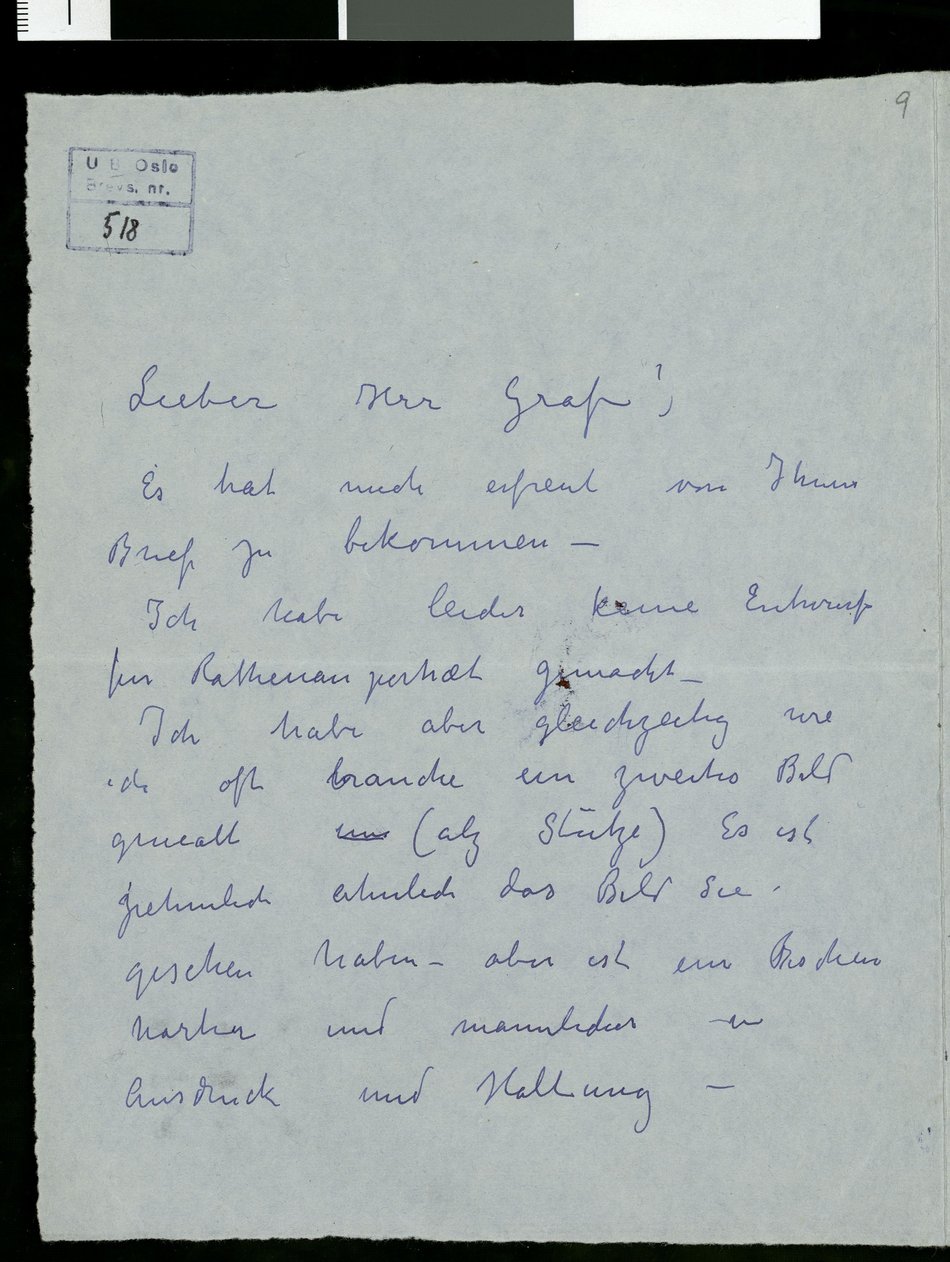 9
U B Oslo
Brevs. nr.
518
Lieber Herr Graf!
Es hat mich erfreut von Ihnen
Brief zu bekommen –
Ich habe leider keine Entwurf
fur Rathenau portræt gemacht –
Ich habe aber gleichzeitig wie
ich oft brauche ein zweites Bild
gemalt (alz Stütze) Es ist
ziehmlich ehnlich das Bild Sie
gesehen haben – aber ist ein Bischen
starker und mannlicher – in
Ausdruck und Haltung –